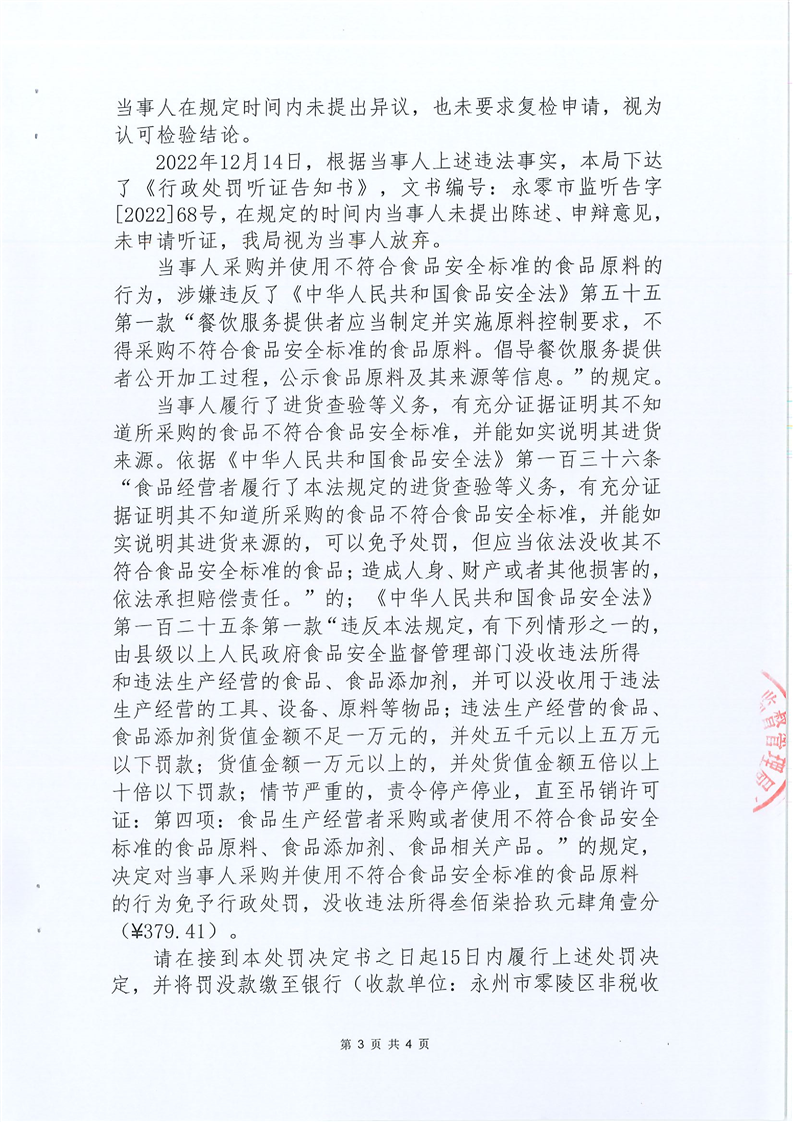 当事人在规定时间内未提出异议，也未要求复检申请，视为
认可检验结论。
2022年12月14日，根据当事人上述违法事实，本局下达
了《行政处罚听证告知书》，文书编号：永零市监听告字
[2022]68号，在规定的时间内当事人未提出陈述、申辩意见，
未申请听证，我局视为当事人放弃。
当事人采购并使用不符合食品安全标准的食品原料的
行为，涉嫌违反了《中华人民共和国食品安全法》第五十五
第一款“餐饮服务提供者应当制定并实施原料控制要求，不
得采购不符合食品安全标准的食品原料。倡导餐饮服务提供
者公开加工过程，公示食品原料及其来源等信息。”的规定。
当事人履行了进货查验等义务，有充分证据证明其不知
道所采购的食品不符合食品安全标准，并能如实说明其进货
来源。依据《中华人民共和国食品安全法》第一百三十六条
“食品经营者履行了本法规定的进货查验等义务，有充分证
据证明其不知道所采购的食品不符合食品安全标准，并能如
实说明其进货来源的，可以免予处罚，但应当依法没收其不
符合食品安全标准的食品；造成人身、财产或者其他损害的，
依法承担赔偿责任。”的；《中华人民共和国食品安全法》
第一百二十五条第一款“违反本法规定，有下列情形之一的，
由县级以上人民政府食品安全监督管理部门没收违法所得
和违法生产经营的食品、食品添加剂，并可以没收用于违法
生产经营的工具、设备、原料等物品；违法生产经营的食品、
食品添加剂货值金额不足一万元的，并处五千元以上五万元
以下罚款；货值金额一万元以上的，并处货值金额五倍以上
十倍以下罚款；情节严重的，责令停产停业，直至吊销许可
证：第四项：食品生产经营者采购或者使用不符合食品安全
标准的食品原料、食品添加剂、食品相关产品。”的规定，
决定对当事人采购并使用不符合食品安全标准的食品原料
的行为免予行政处罚，没收违法所得叁佰柒拾玖元肆角壹分
（¥379.41）。
请在接到本处罚决定书之日起15日内履行上述处罚决
定，并将罚没款缴至银行（收款单位：永州市零陵区非税收
第 3 页 共 4 页
监督管理局